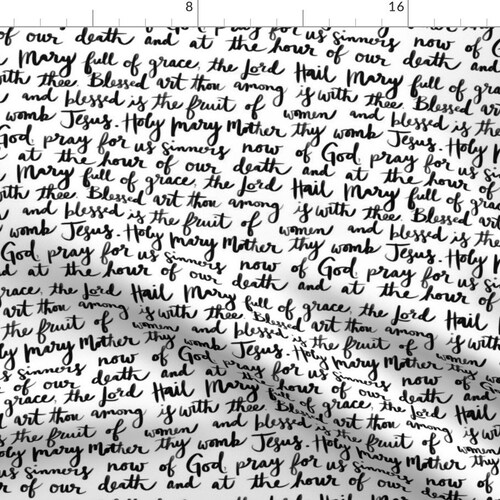 8 16
God, pray for us sinners now of
of our death and at the hour of our death and
Mary full of grace, the Lord Hail Mary full of grace,
with thee. Blessed art thou among is with thee. Blessed art
and blessed is the fruit of women and blessed is the
womb Jesus. Holy Mary Mother thy womb Jesus. Holy
God, pray for us sinners now of God, pray for us
at the hour of our death and at the hour of our
Mary full of grace, the Lord Hail Mary full of grace,
with thee. Blessed art thou among is with thee. Blessed art
and blessed is the fruit of women and blessed is the
womb Jesus. Holy Mary Mother thy womb Jesus. Holy
God, pray for us sinners now of God, pray for us
and at the hour of our death and at the hour of our
grace, the Lord Hail Mary full of grace, the Lord Hail
art thou among is with thee. Blessed art thou among is with
the fruit of women and blessed is the fruit of women
Mary Mother thy womb Jesus. Holy Mary Mother
us sinners now of God, pray for us sinners now of
of our death and at the hour of our death and
grace, the Lord Hail Mary full of grace, the Lord Hail
art thou among is with thee. Blessed art thou among is
the fruit of women and blessed is the fruit of women
Mary Mother thy womb Jesus. Holy Mary Mother
us sinners now of God, pray for us sinners now of
of our death and at the hour of our death and